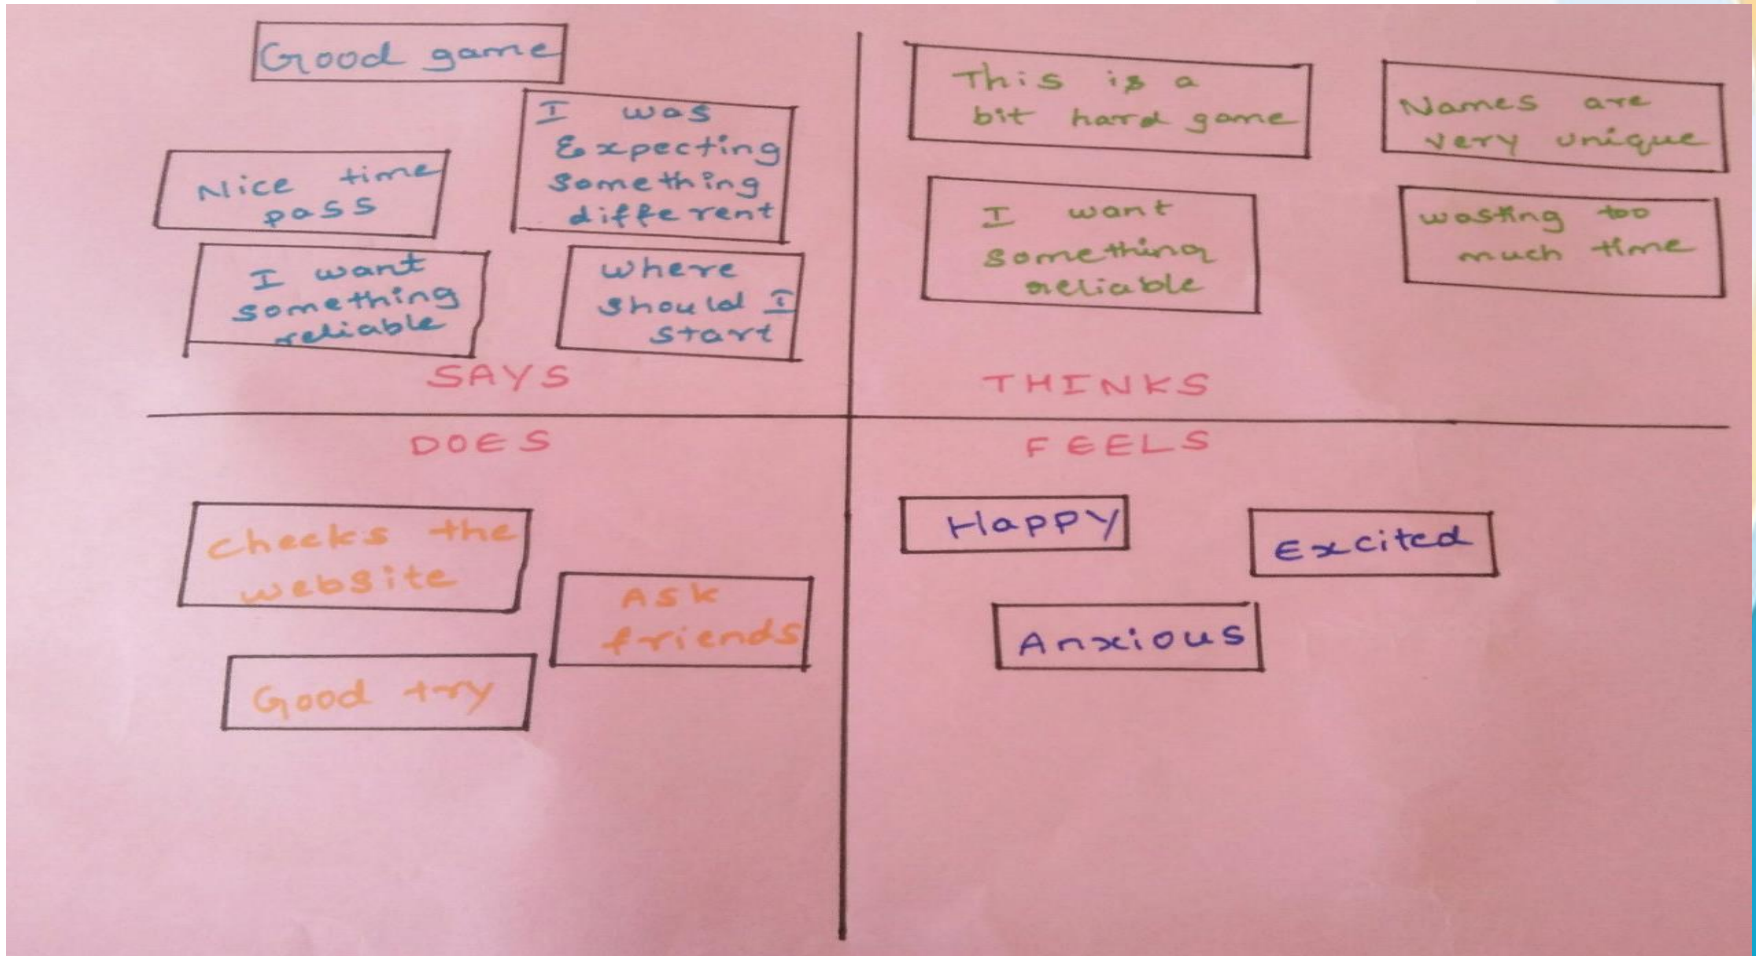 Good game
I was
Expecting
something
different
Nice time
pass
I want
something
reliable
where
should I
start
SAYS
This is a
bit hard game
Names are
very unique
I want
something
reliable
wasting too
much time
THINKS
DOES
checks the
website
Ask
friends
Good try
FEELS
Happy
Excited
Anxious